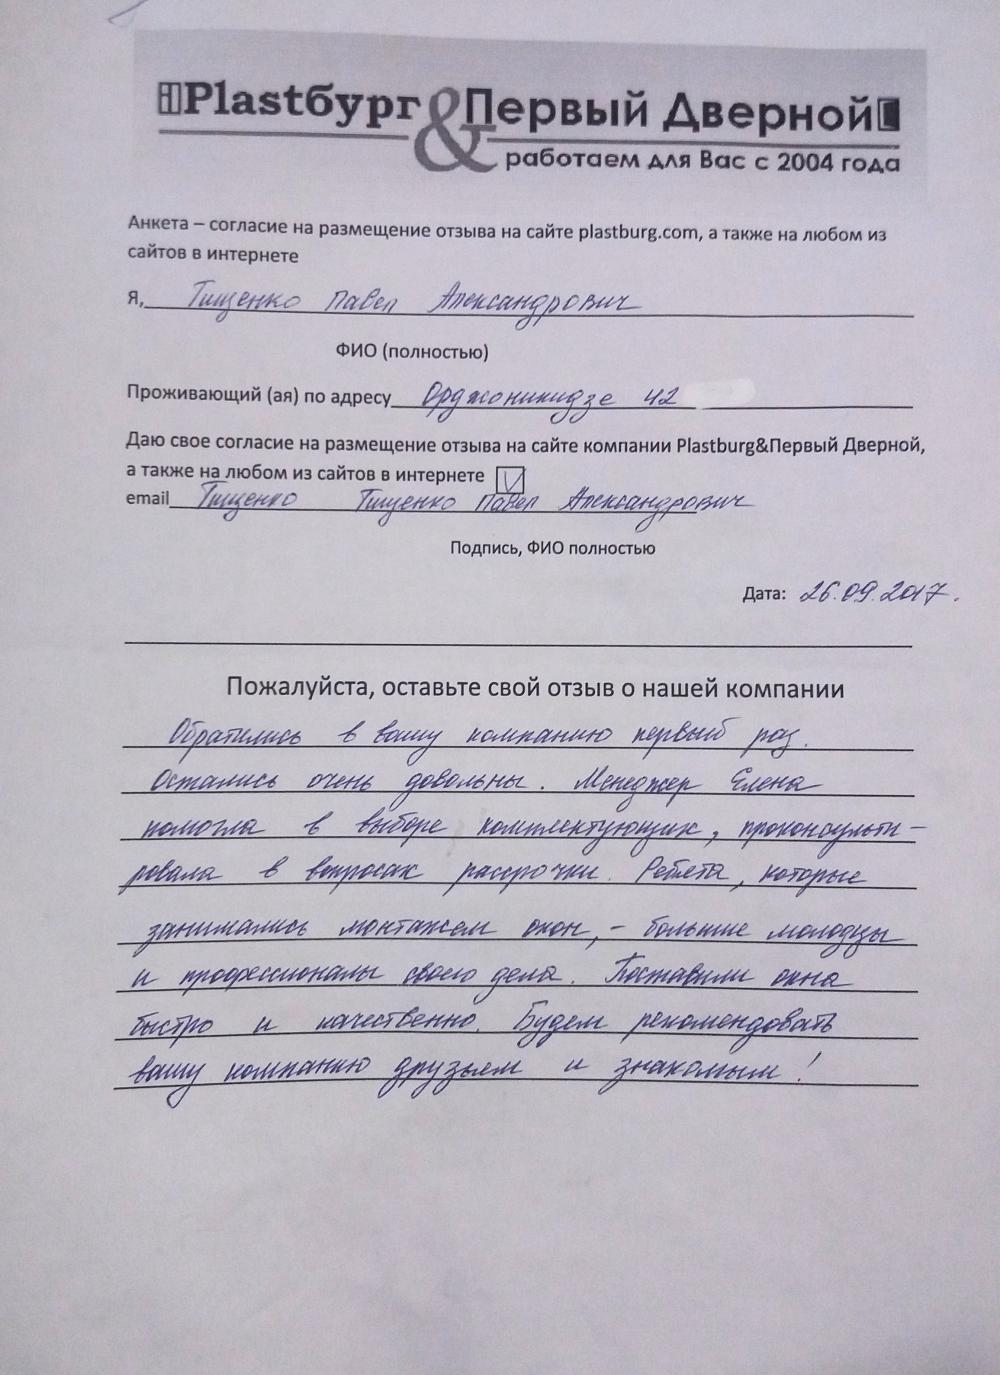 Plastбург & Первый Дверной
работаем для Вас с 2004 года
Анкета – согласие на размещение отзыва на сайте plastburg.com, а также на любом из
сайтов в интернете
Я, Тищенко Павел Александрович
ФИО (полностью)
Проживающий (ая) по адресу Орджоникидзе 42
Даю свое согласие на размещение отзыва на сайте компании Plastburg&Первый Дверной,
а также на любом из сайтов в интернете
email Тищенко Тищенко Павел Александрович
Подпись, ФИО полностью
Дата: 26.09.2017.
Пожалуйста, оставьте свой отзыв о нашей компании
Обратились в вашу компанию первый раз.
Остались очень довольны. Менеджер Елена
помогла в выборе комплектующих, проконсульти-
ровала в вопросах рассрочки. Ребята, которые
занимались монтажем окон, - большие молодцы
и профессионалы своего дела. Поставили окна
быстро и качественно. Будем рекомендовать
вашу компанию друзьям и знакомым!